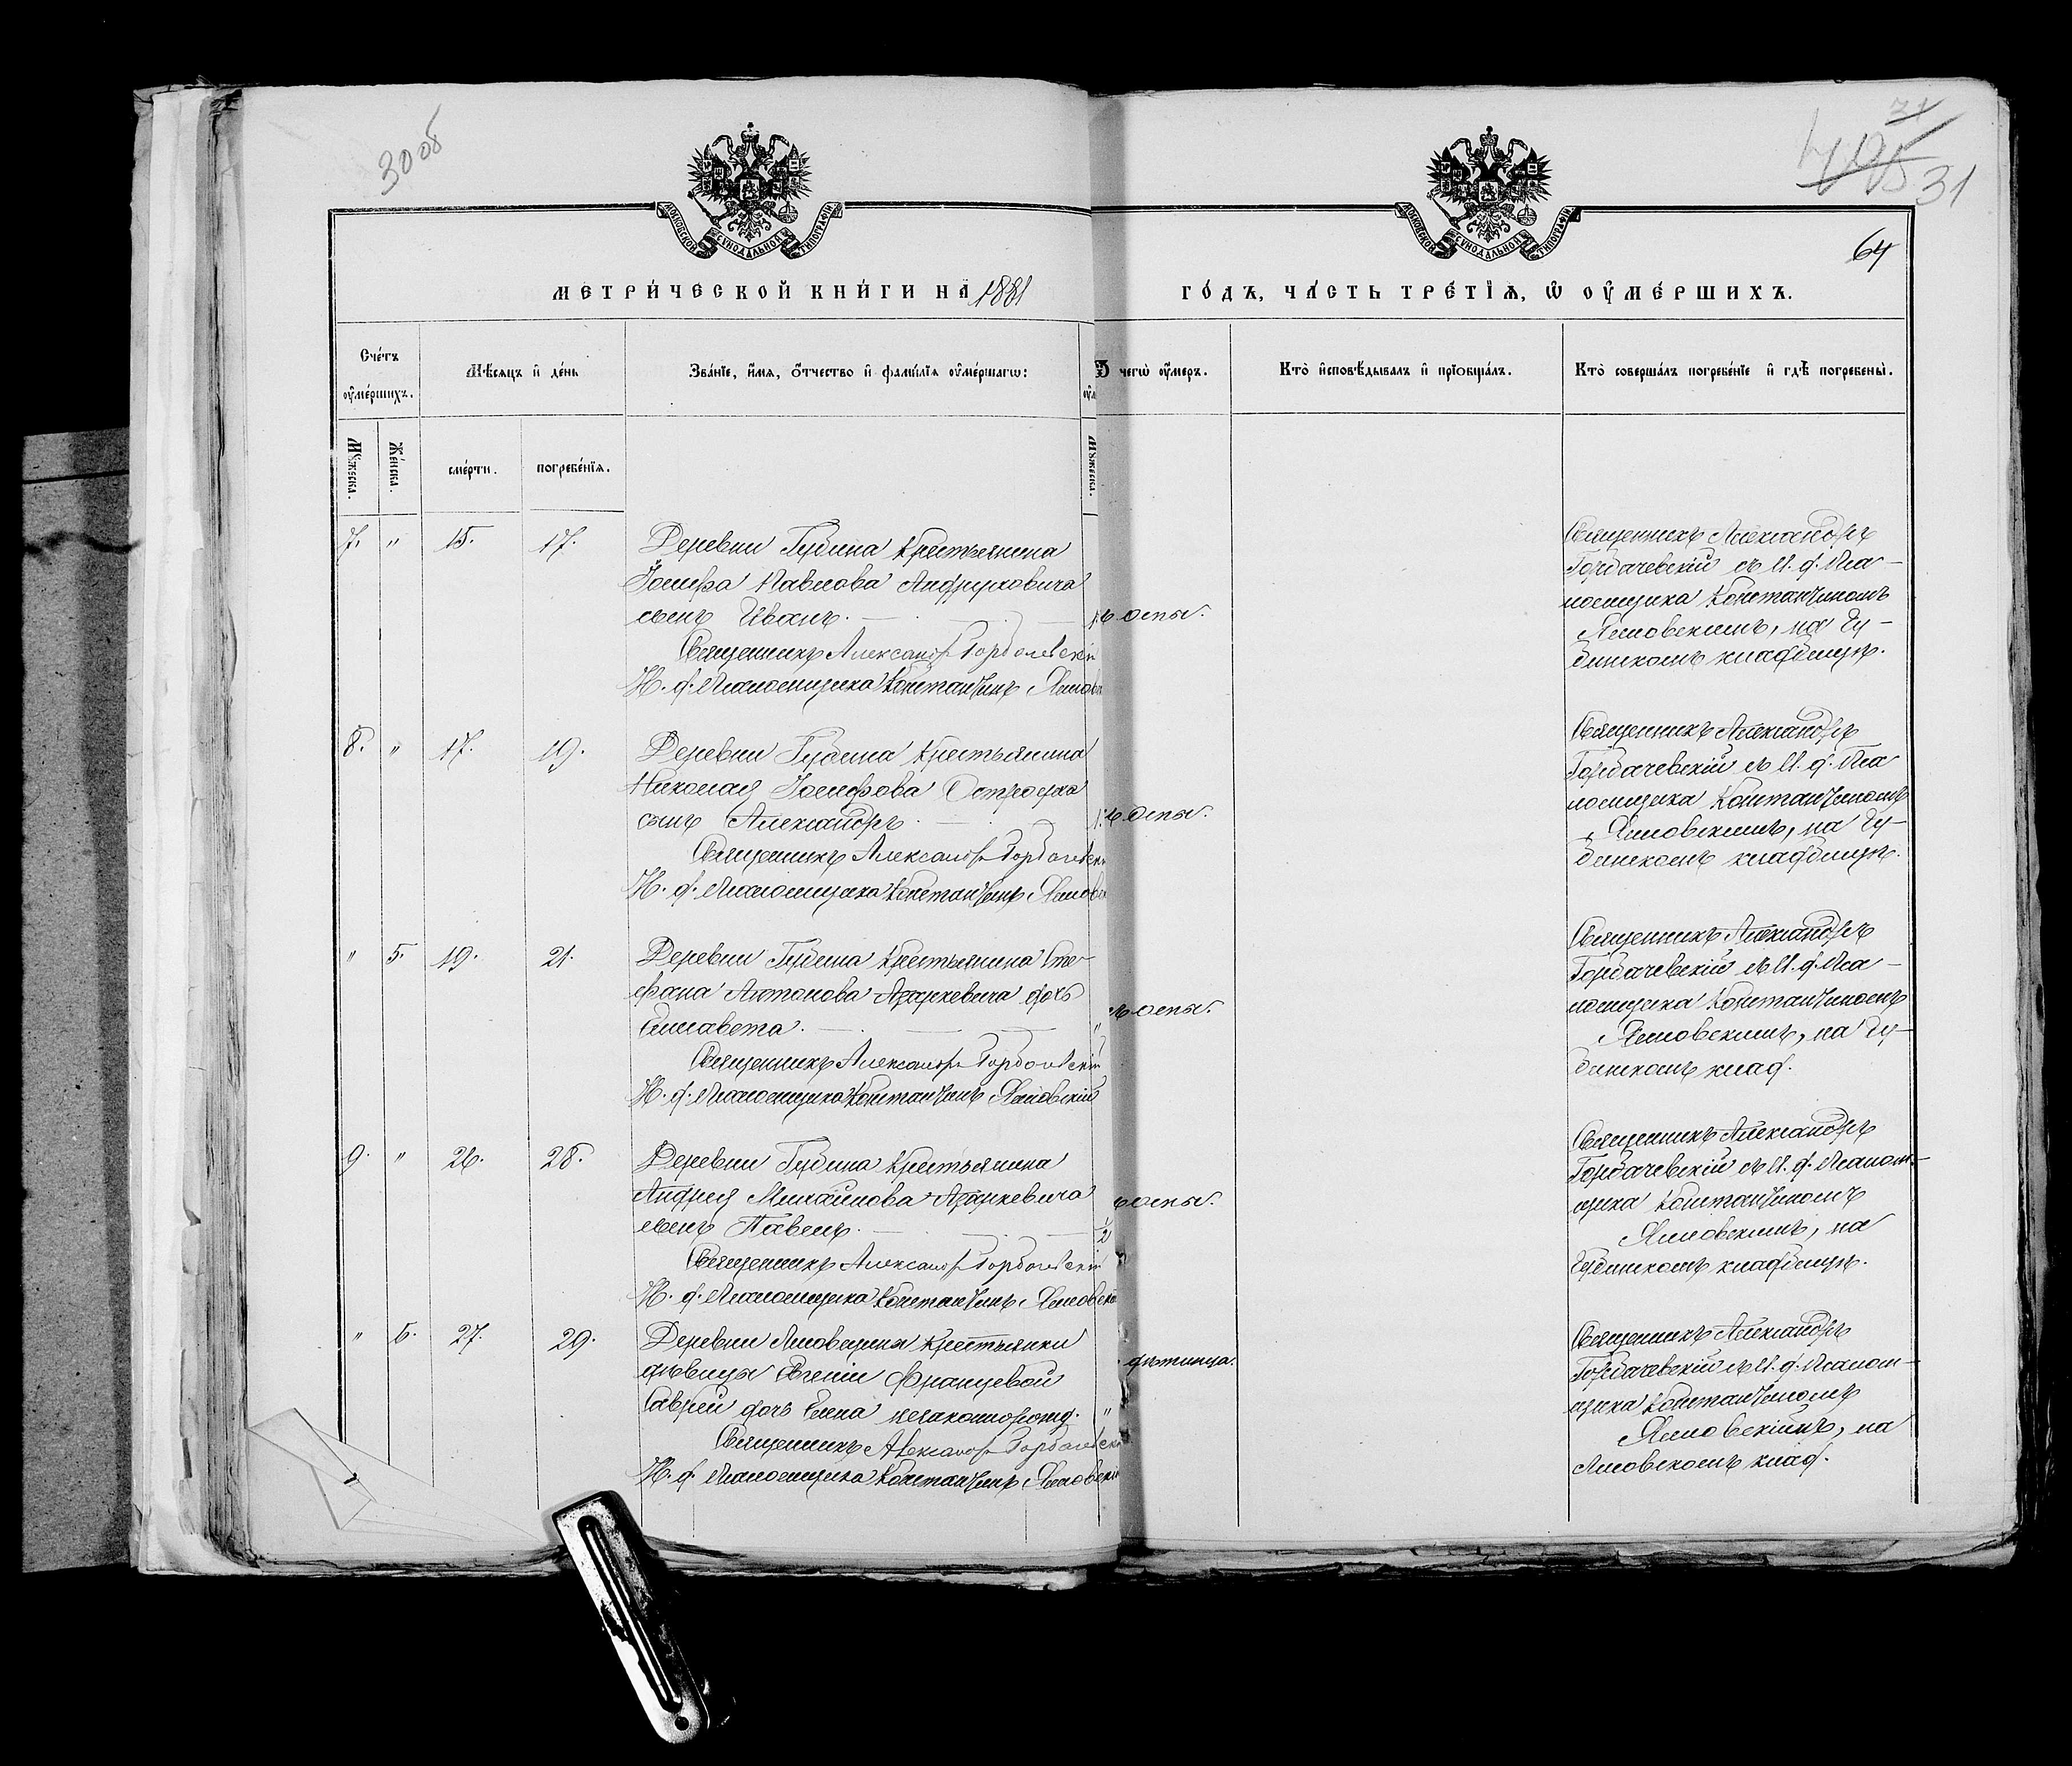 30 об
495
31
64
МОСКОВСКОЙ СУНОДАЛЬНОЙ ТИПОГРАФІИ
МОСКОВСКОЙ СУНОДАЛЬНОЙ ТИПОГРАФІИ
МЕТРИ́ЧЕСКОЙ КНИ́ГИ НА 1881
ГО́ДЪ, ЧА́СТЬ ТРЕ́ТІѦ, Ѿ ОУМЕ́РШИХЪ.
Счéтъ оумéршихъ.
Мѣ́сяцъ и дéнь
Звáнїе, и́мя, óтчество и фамилїя оумéршагѡ:
Ѿ чегѡ оумеръ.
Ктò исповѣ́дывалъ и прїобщáлъ.
Ктò совершáлъ погребéнїе и гдѣ̀ погребены̀.
Мꙋжеска.
Жéнска.
смéрти.
погребéнїѧ.
Мꙋжеска.
7. " 15. 17.
Деревни Губина крестьянина
Іосифа Павлова Андруховича
сынъ Иванъ.
Священникъ Александръ Горбачевскій
И. д. Псаломщика Константинъ Ялов
оспы.
Священникъ Александръ
Горбачевскій съ И. д. Пса-
ломщика Константиномъ
Яловскимъ, на Гу-
бинскомъ кладбищѣ.
8. " 17. 19.
Деревни Губина крестьянина
Николая Іосифова Остроуха
сынъ Александръ.
Священникъ Александръ Горбачевскі
И. д. Псаломщика Константинъ Ялов
оспы.
Священникъ Александръ
Горбачевскій съ И. д. Пса
ломщика Константиномъ
Яловскимъ, на Гу-
бинскомъ кладбищѣ.
" 5. 19. 21.
Деревни Губина крестьянина Сте-
фана Антонова Азаркевича дочь
Елисавета.
Священникъ Александръ Горбачевскій
И. д. Псаломщика Константинъ Яловскій
оспы.
Священникъ Александръ
Горбачевскій съ И. д. Пса-
ломщика Константиномъ
Яловскимъ, на Гу-
бинскомъ клад.
9. " 26. 28.
Деревни Губина крестьянина
Андрея Михайлова Азаркевича
сынъ Павелъ.
1/2
Священникъ Александръ Горбачевскій
И. д. Псаломщика Константинъ Яловск
оспы.
Священникъ Александръ
Горбачевскій съ И. д. Псалом-
щика Константиномъ
Яловскимъ, на
Губинскомъ кладбищѣ.
" 6. 27. 29.
Деревни крестьянки
дѣвицы Евгеніи Францевой
Саврей дочь Елена незаконнорожд. "
Священникъ Александръ Горбачевск
И. д. Псаломщика Константинъ Яловскі
дѣтинца.
Священникъ Александръ
Горбачевскій съ И. д. Псалом-
щика Константиномъ
Яловскимъ, на
клад.